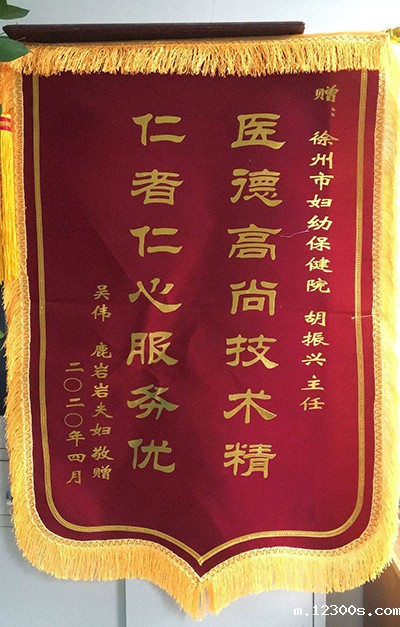 赠：徐州市妇幼保健院 胡振兴主任
医德高尚技术精
仁者仁心服务优
吴伟 鹿岩岩夫妇敬赠
二〇二〇年四月
m.12300s.com